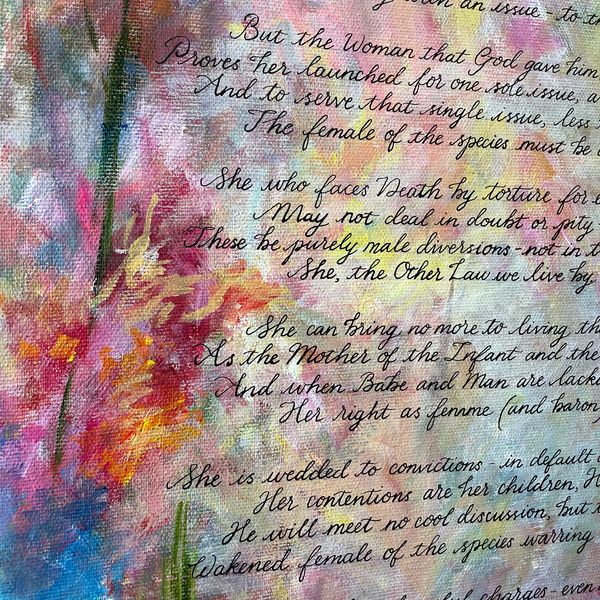 an issue - to th
But the Woman that God gave him
Proves her launched for one sole issue, a
And to serve that single issue, less
The female of the species must be
She who faces Death by torture for e
May not deal in doubt or pity
These be purely male diversions - not in t
She, the Other Law we live by
She can bring no more to living th
As the Mother of the Infant and the
And when Babe and Man are lacki
Her right as femme (and baron)
She is wedded to convictions - in default
Her contentions are her children, H
He will meet no cool discussion, but
Wakened female of the species warring
charges - even